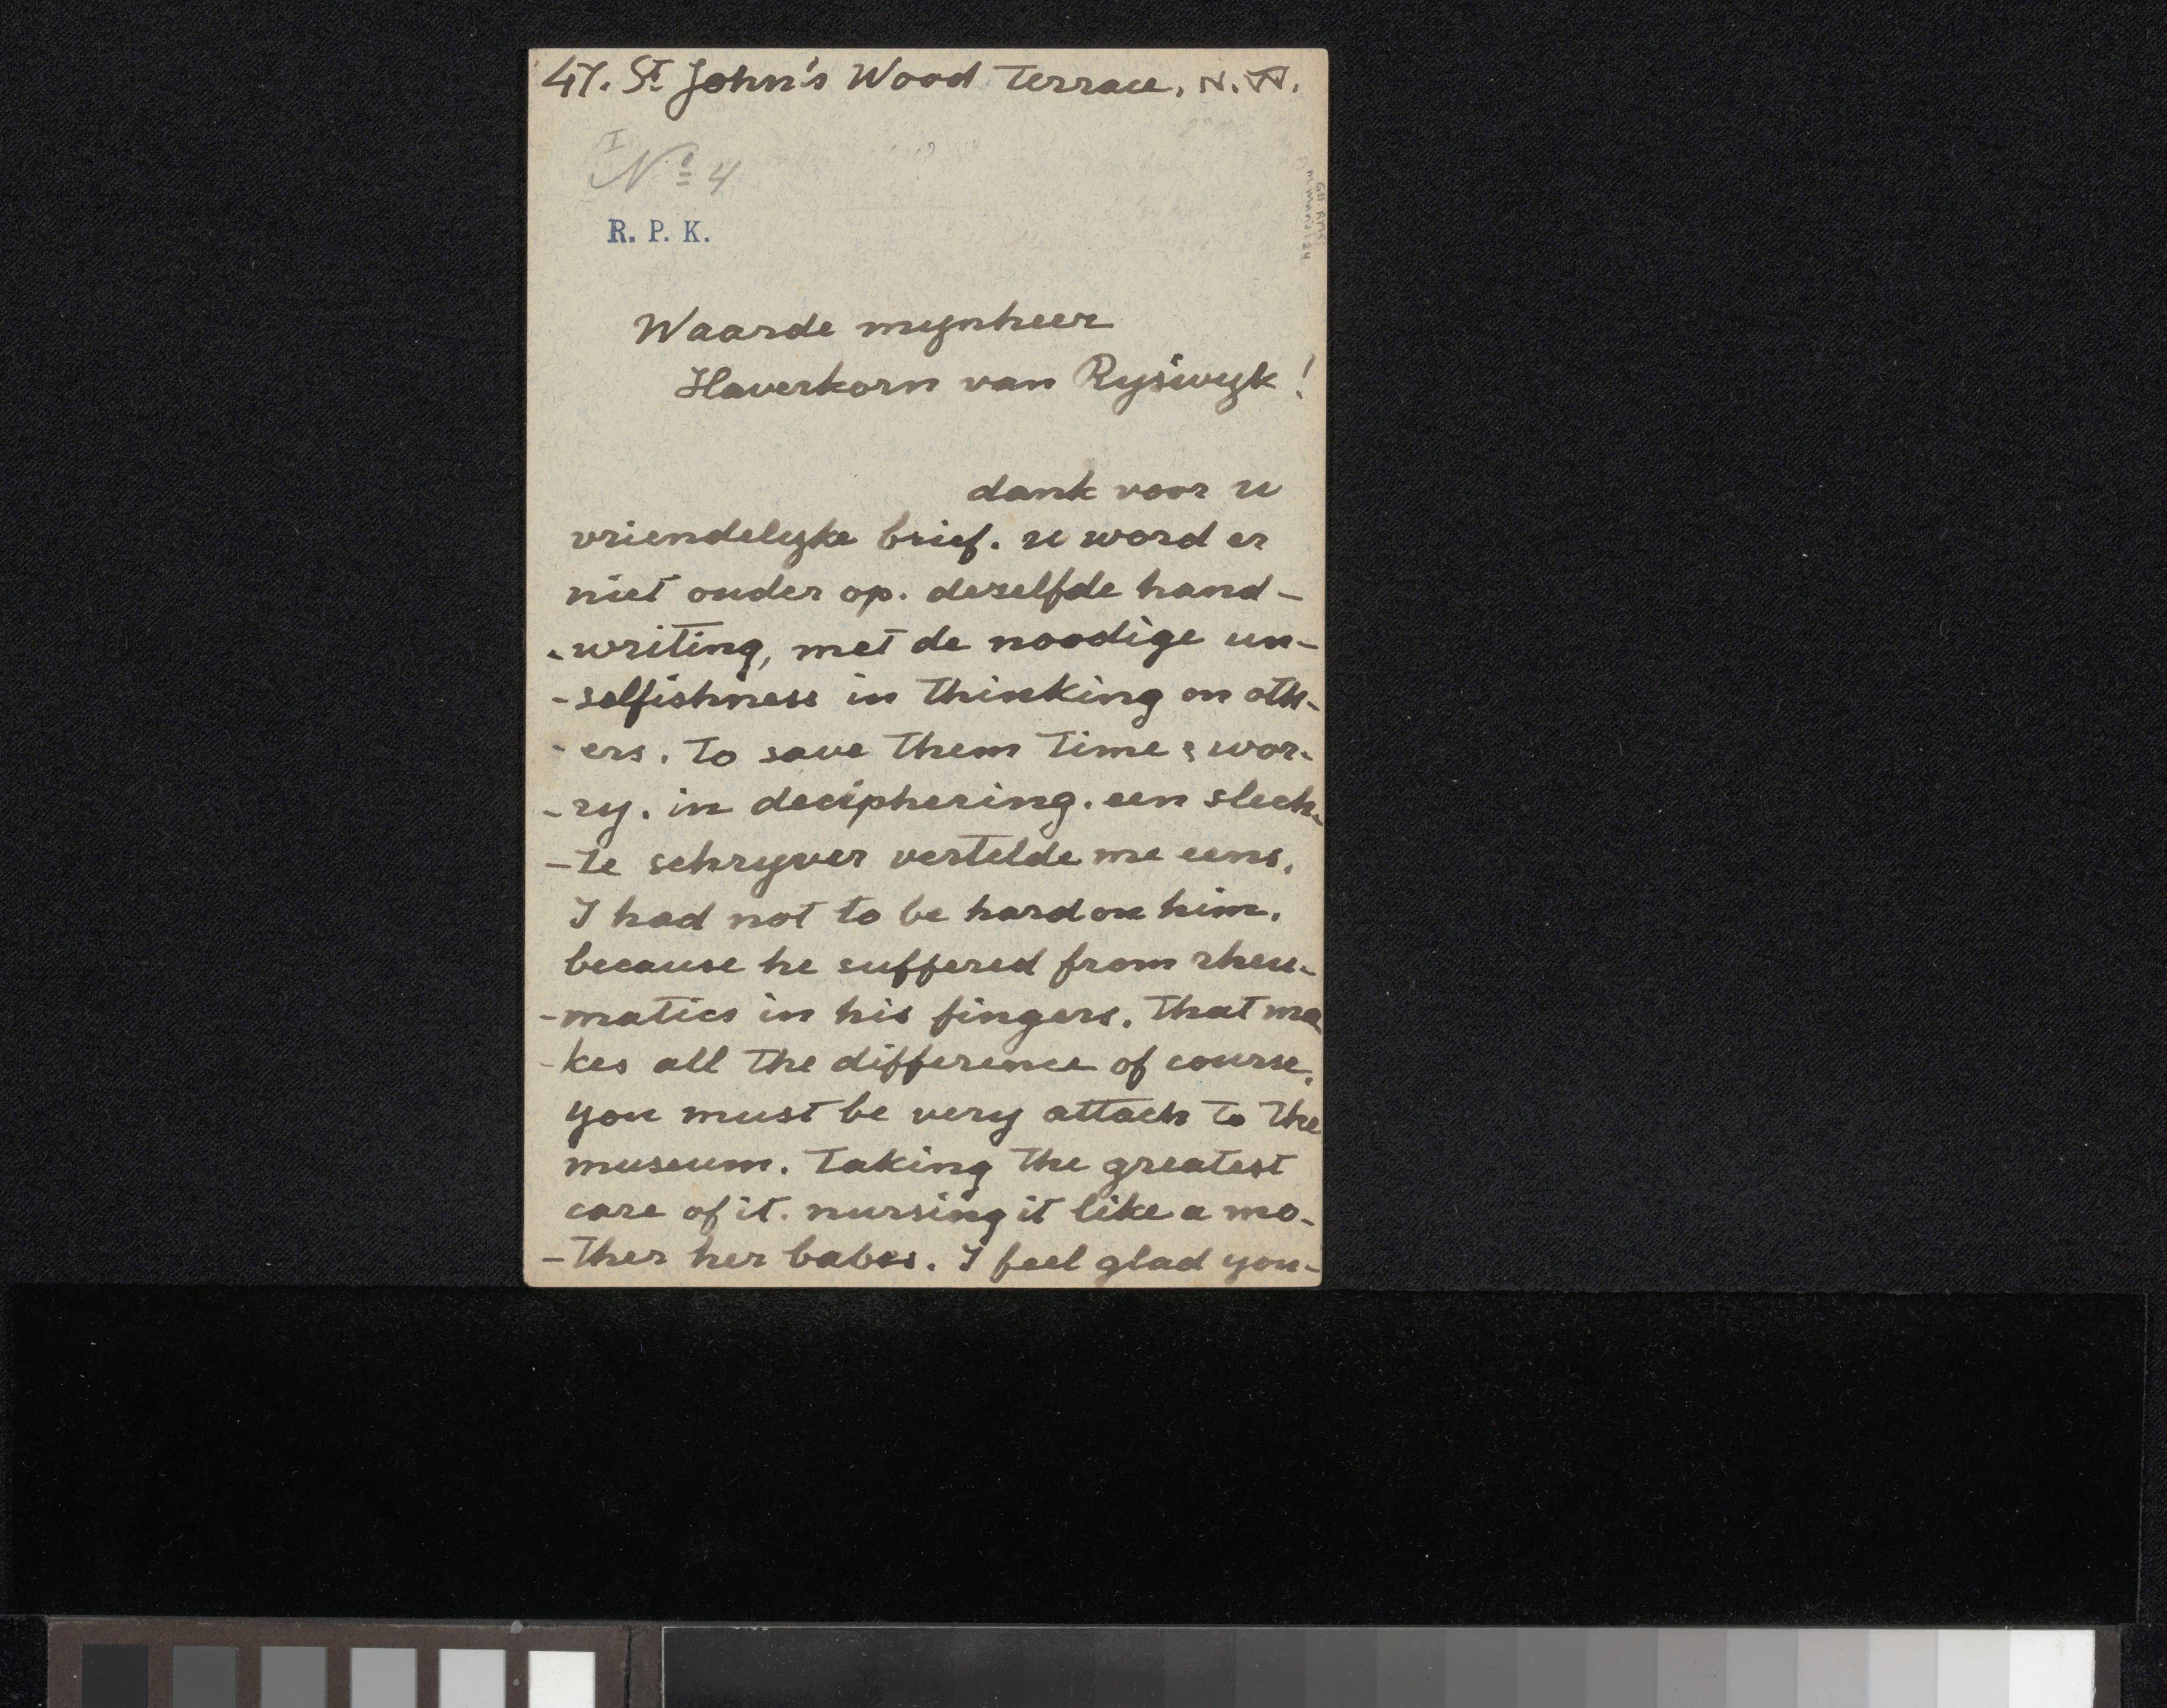 47. St John's Wood Terrace, N.W.
I
No 4
R. P. K.
Waarde mynheer
Haverkorn van Ryswyk!
dank voor u
vriendelyke brief. u word er
niet ouder op. deselfde hand-
-writing, met de noodige un-
-selfishness in thinking on oth-
-ers. to save them time & wor-
-ry. in deciphering. een slech-
-te schryver vertelde me eens,
I had not to be hard on him.
because he suffered from rheu-
-matics in his fingers. that ma
-kes all the difference of course.
you must be very attach to the
museum. taking the greatest
care of it. nursing it like a mo-
-ther her babes. I feel glad you-